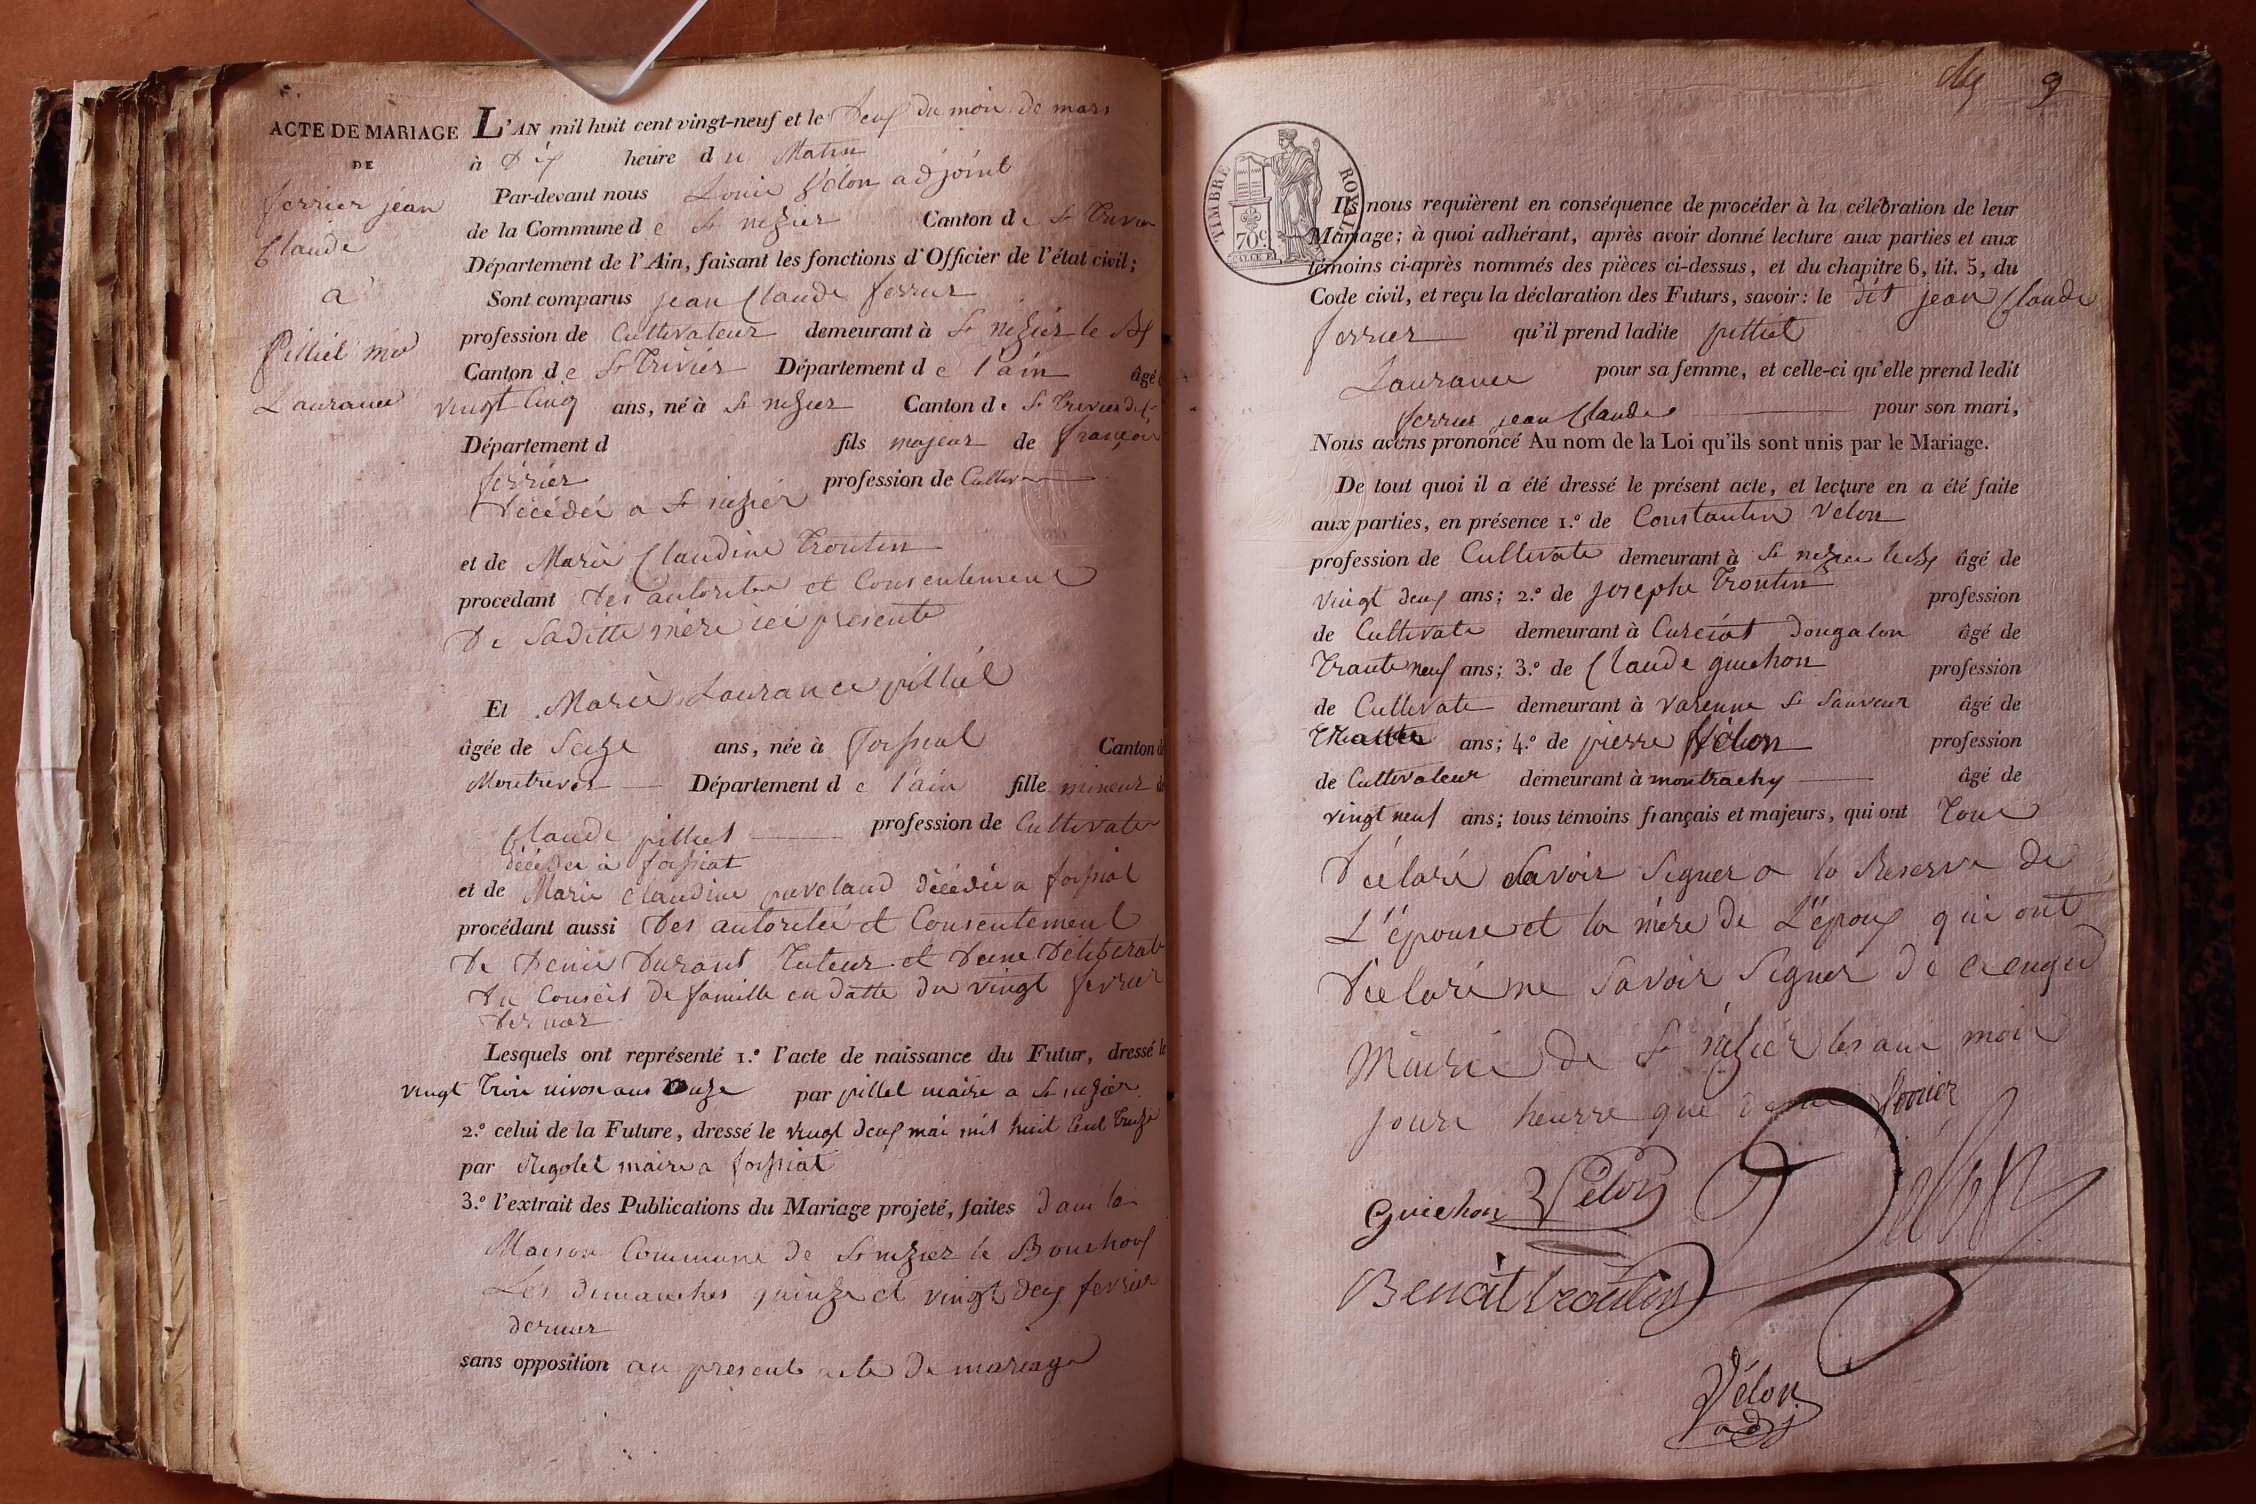 ACTE DE MARIAGE
DE
ferrier jean
Claude
a
Pilliel
Laurance
L'AN mil huit cent vingt-neuf et le deux du mois de mars
à dix heure du Matin
Par-devant nous Louis Vélon adjoint
de la Commune de St nezier Canton de St Trivier
Département de l'Ain, faisant les fonctions d'Officier de l'état civil;
Sont comparus jean Claude ferrier
profession de Cultivateur demeurant à St nezier le
Canton de St Trivier Département de l'ain âgé
vingt Cinq ans, né à St nezier Canton de St Trivier
Département d fils majeur de françois
ferrier profession de Cultiv
décédé a St nezier
et de Marie Claudine Troutin
procedant des autorité et Consentement
de Saditte mère ici présente
Et Marie Laurance pilliel
âgée de Seize ans, née à foissiat Canton de
Montrevel Département de l'ain fille mineur de
Claude pilliet profession de Cultivateur
décéder à foissiat
et de Marie Claudine décédée a foissiat
procédant aussi des autorité et Consentement
de Denis Durant Tuteur et d'une délibérat
du Conseil de famille en datte du vingt fevrier
dernier
Lesquels ont représenté 1.º l'acte de naissance du Futur, dressé le
vingt Trois nivos ans onze par pillet maire a St nezier
2.º celui de la Future, dressé le vingt deux mai mil huit Cent Treize
par Rigolet maire a foissiat
3.º l'extrait des Publications du Mariage projeté, faites dans la
Maison Commune de St nezier le Bouchoux
Les dimanches quinze et vingt deux fevrier
dernier
sans opposition au present acte de mariage
9
TIMBRE ROYAL
70c
Ils nous requièrent en conséquence de procéder à la célébration de leur
Mariage; à quoi adhérant, après avoir donné lecture aux parties et aux
témoins ci-après nommés des pièces ci-dessus, et du chapitre 6, tit. 5, du
Code civil, et reçu la déclaration des Futurs, savoir: le dit jean Claude
ferrier qu'il prend ladite pilliel
Laurance pour sa femme, et celle-ci qu'elle prend ledit
ferrier jean Claude pour son mari,
Nous avons prononcé Au nom de la Loi qu'ils sont unis par le Mariage.
De tout quoi il a été dressé le présent acte, et lecture en a été faite
aux parties, en présence 1.º de Constantin Vélon
profession de Cultivate demeurant à St nezier âgé de
vingt deux ans; 2.º de josephe Troutin profession
de Cultivate demeurant à Curciat dongalon âgé de
Trante neuf ans; 3.º de Claude guichon profession
de Cultivate demeurant à Varenne St Sauveur âgé de
ans; 4.º de pierre Vélon profession
de Cultivateur demeurant à montrachy âgé de
vingt neuf ans; tous témoins français et majeurs, qui ont Tous
délaré Savoir Signer a la Reserve de
L'épouse et la mère de L'époux qui ont
délaré ne Savoir Signer de ce enquis
Mairie de St nézier les ans mois
jours heurre que ferrier
Guichon Vélon
Benoit troutin
Vélon
adj